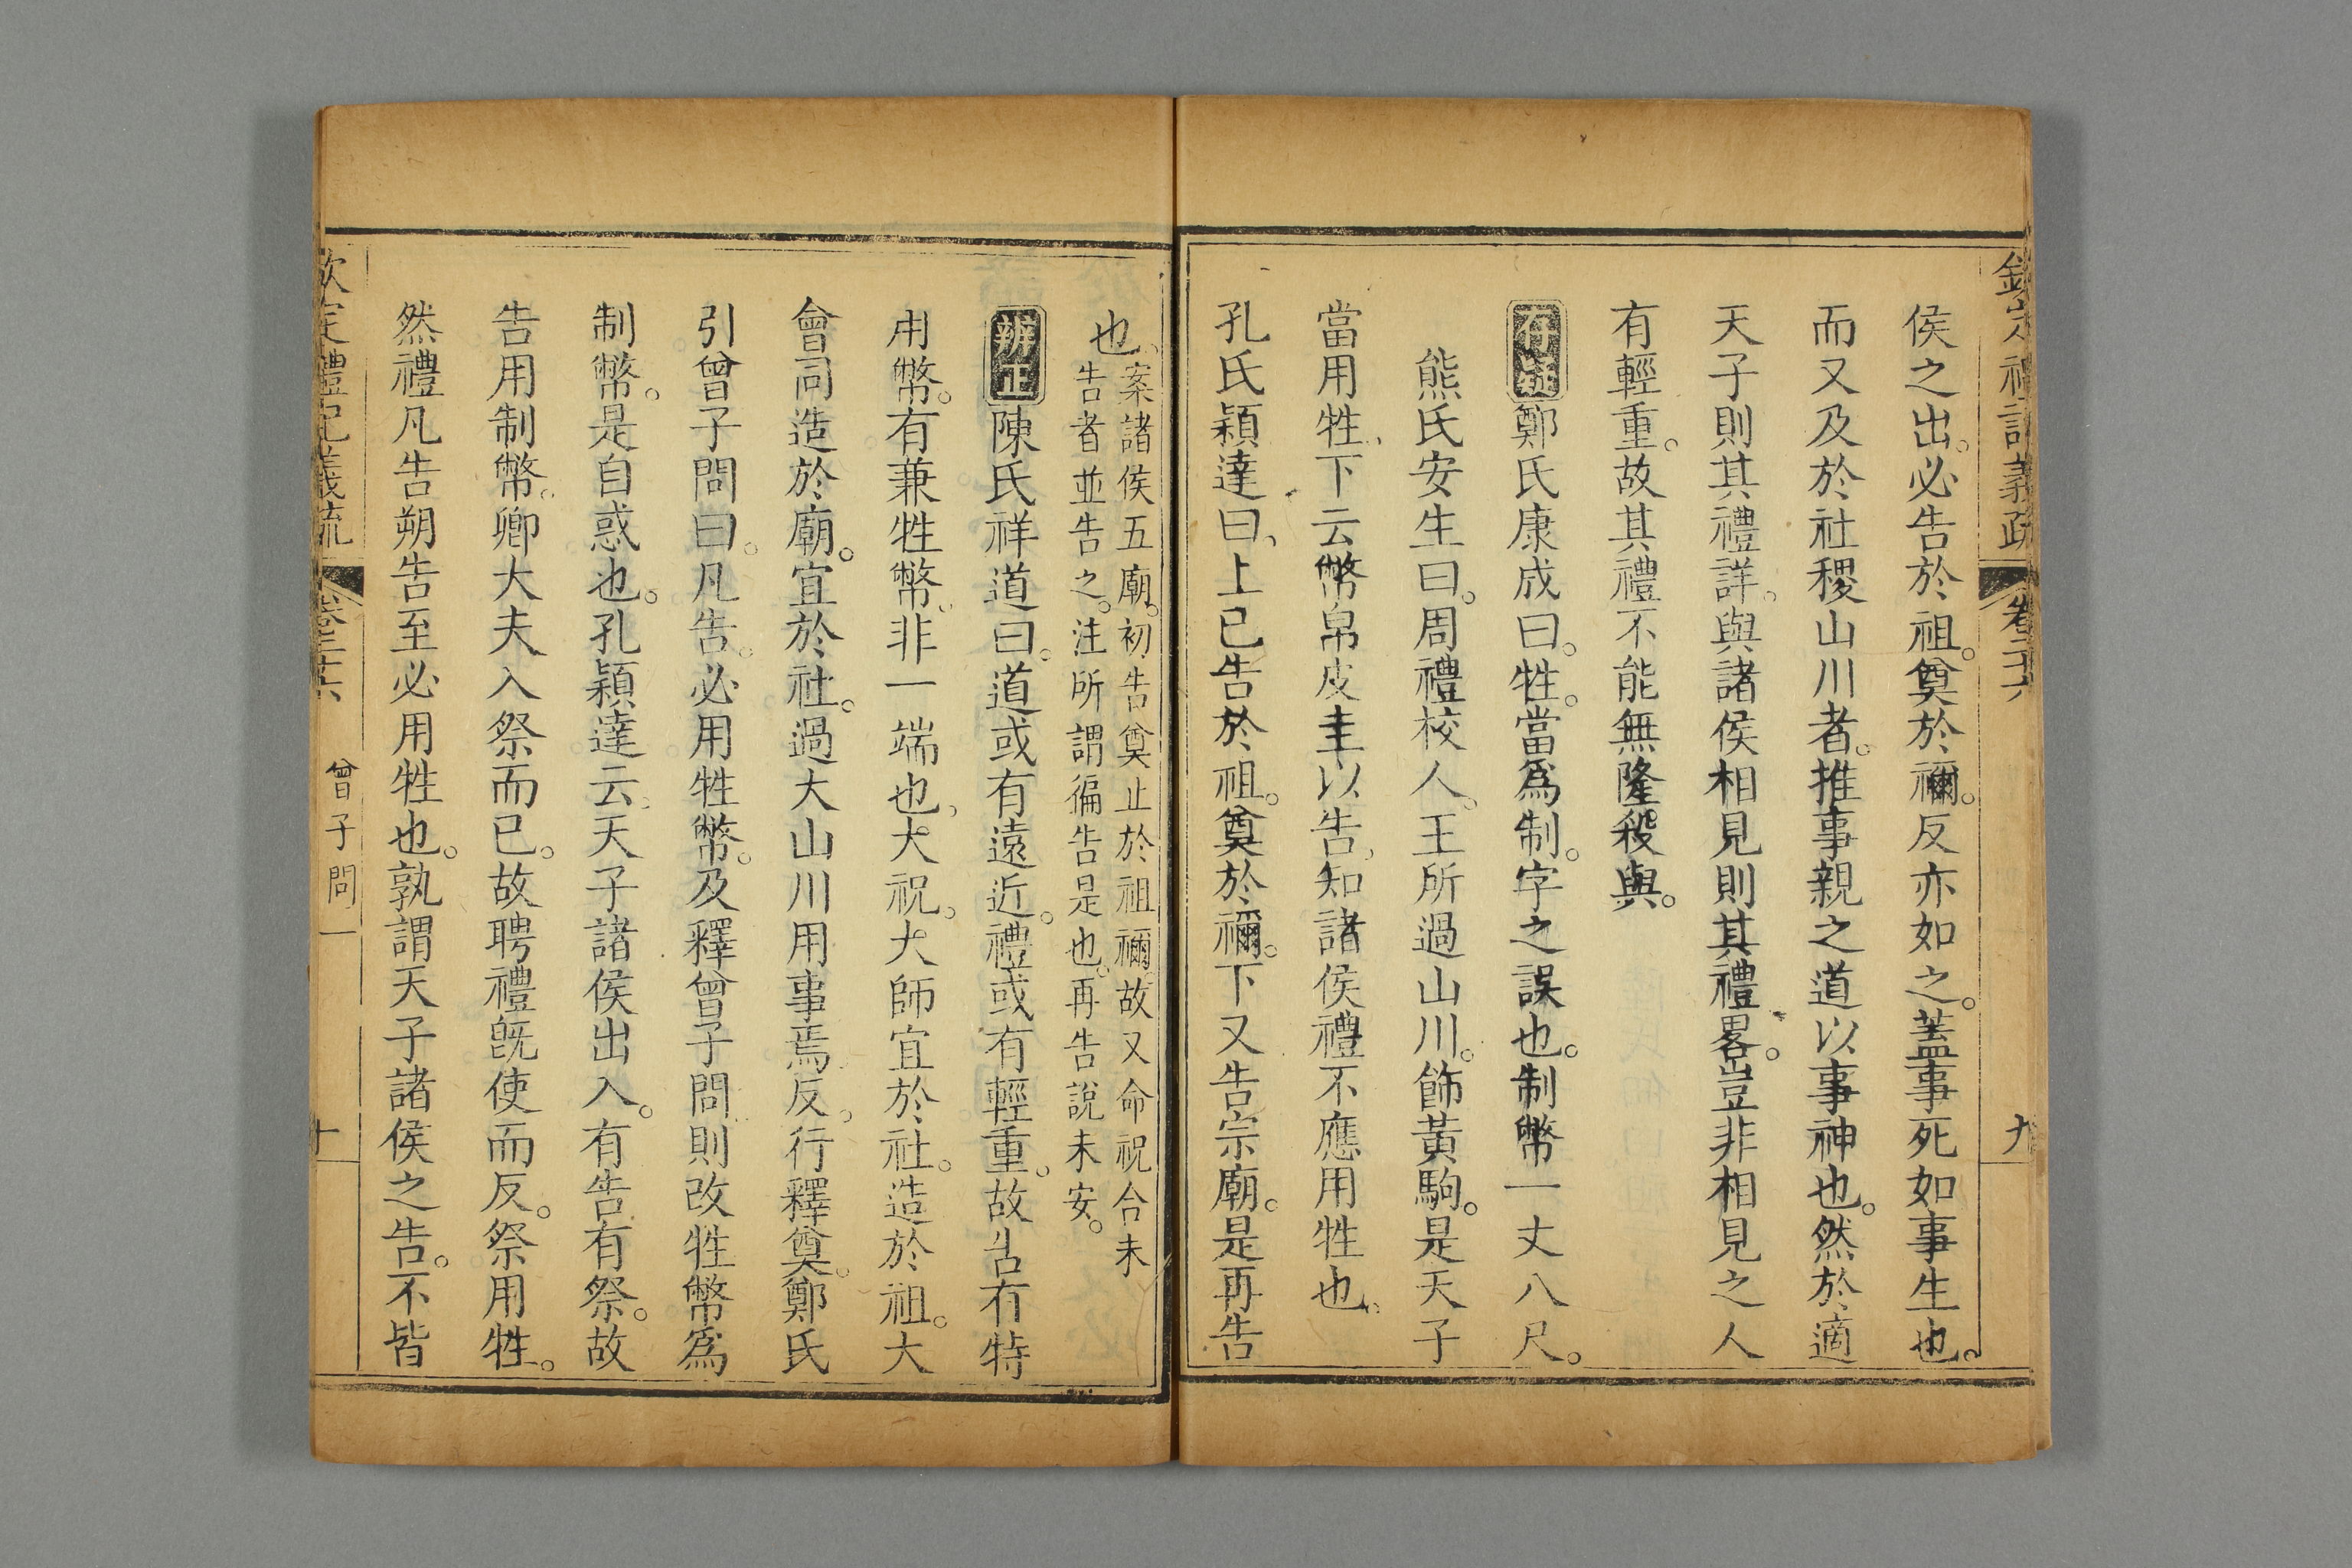 侯之出。必告於祖。奠於禰。反亦如之。蓋事死如事生也。
而又及於社稷山川者。推事親之道以事神也。然於適
天子則其禮詳。與諸侯相見則其禮畧。豈非相見之人
有輕重。故其禮不能無隆殺與。
存疑鄭氏康成曰。牲。當爲制。字之誤也。制幣一丈八尺。
熊氏安生曰。周禮校人。王所過山川。飾黃駒。是天子
當用牲、下云幣帛皮圭以告、知諸侯禮不應用牲也。
孔氏穎達曰、上已告於祖。奠於禰。下又告宗廟。是再告
也。案諸侯五廟。初告奠止於祖禰。故又命祝合未
告者並告之。注所謂徧告是也。再告說未安。
辨正陳氏祥道曰。道或有遠近。禮或有輕重。故告有特
用幣。有兼牲幣。非一端也、大祝。大師宜於社。造於祖。大
會同造於廟。宜於社。過大山川用事焉。反、行釋奠。鄭氏
引曾子問曰。凡告。必用牲幣。及釋曾子問則改牲幣爲
制幣。是自惑也。孔穎達云、天子諸侯出入。有告有祭。故
告用制幣。卿大夫入祭而已。故聘禮既使而反。祭用牲。
然禮凡告朔告至必用牲也。孰謂天子諸侯之告。不皆
欽定禮記義疏 卷二十六 曾子問一 十